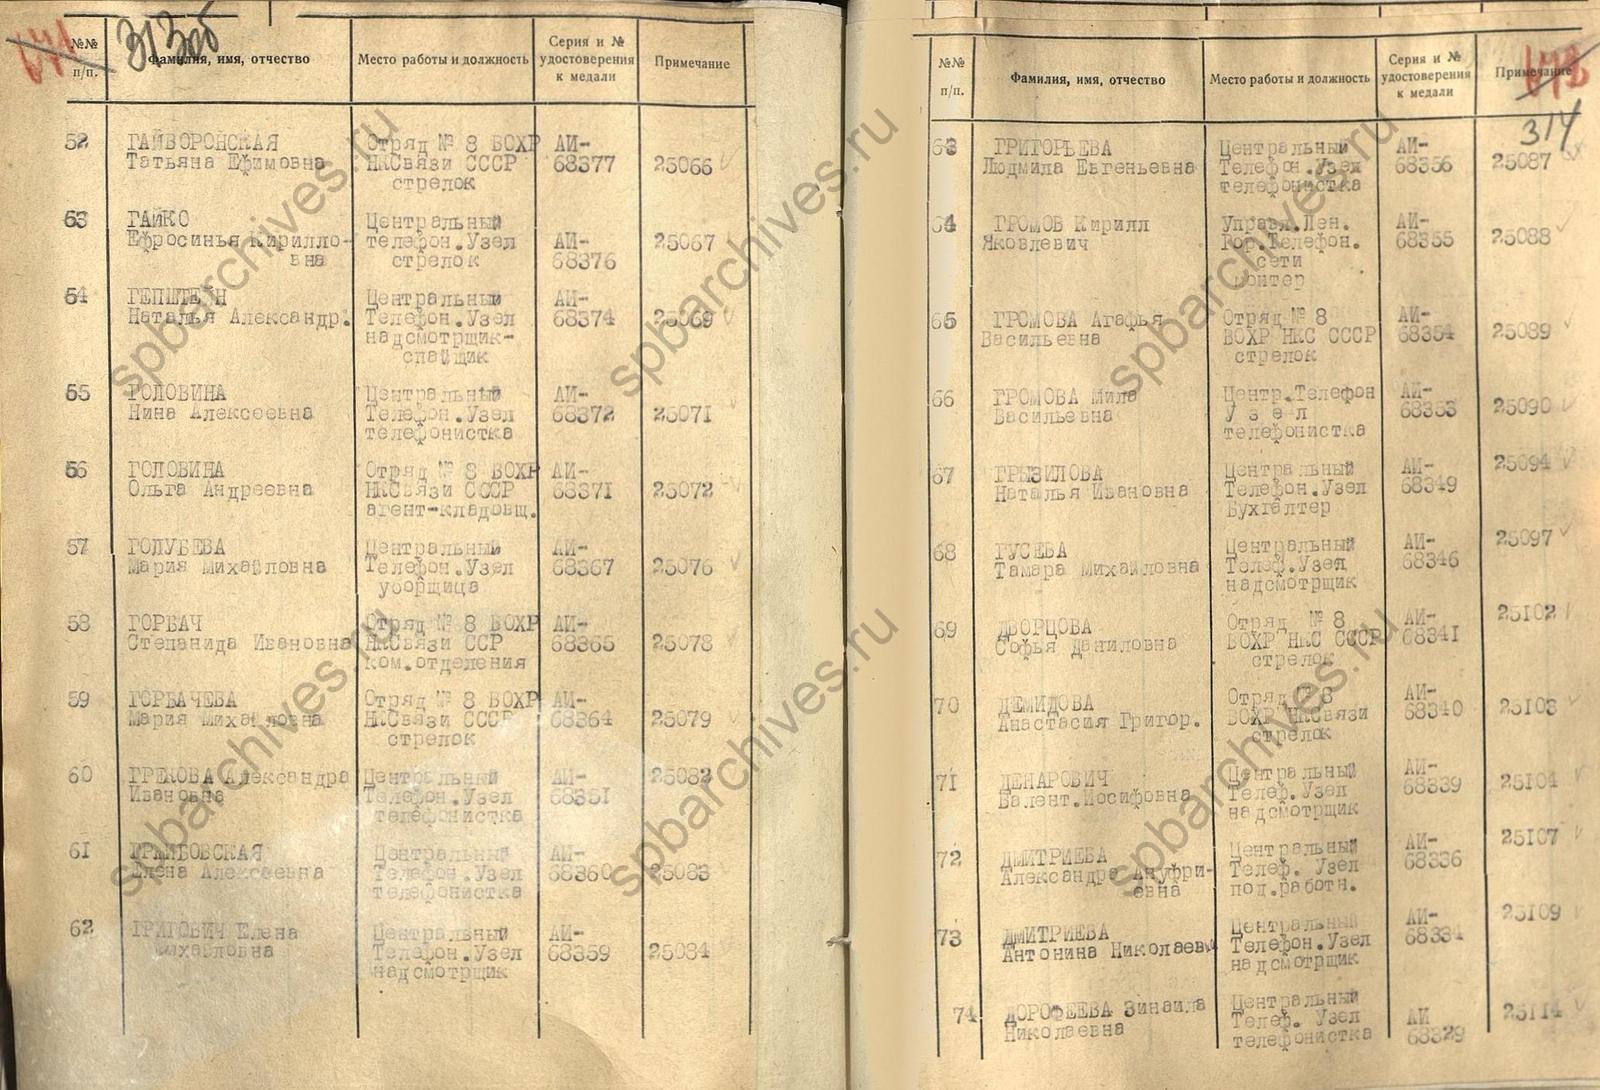 313об
№№ п/п.
Фамилия, имя, отчество
Место работы и должность
Серия и № удостоверения к медали
Примечание
52 ГАЙВОРОНСКАЯ Отряд № 8 ВОХР АИ-
Татьяна Ефимовна НКСвязи СССР 68377 25066
стрелок
53 ГАЙКО Центральный
Ефросинья Кирилло- телефон.Узел АИ- 25067
вна стрелок 68376
54 ГЕПШТЕЙН Центральный АИ-
Наталья Александр. Телефон.Узел 68374 25069
надсмотрщик-
спайщик
55 ГОЛОВИНА Центральный АИ-
Нина Алексеевна Телефон.Узел 68372 25071
телефонистка
56 ГОЛОВИНА Отряд № 8 ВОХР АИ-
Ольга Андреевна НКСвязи СССР 68371 25072
агент-кладовщ.
57 ГОЛУБЕВА Центральный АИ-
Мария Михайловна Телефон.Узел 68367 25076
уборщица
58 ГОРБАЧ Отряд № 8 ВОХР АИ-
Степанида Ивановна НКСвязи ССР 68365 25078
ком.отделения
59 ГОРБАЧЕВА Отряд № 8 ВОХР АИ-
Мария Михайловна НКСвязи СССР 68364 25079
стрелок
60 ГРЕКОВА Александра Центральный АИ- 25082
Ивановна Телефон.Узел 68361
телефонистка
61 ГРИБОВСКАЯ Центральный АИ-
Елена Алексеевна Телефон.Узел 68360 25083
телефонистка
62 ГРИГОВИЧ Елена Центральный АИ-
Михайловна Телефон.Узел 68359 25084
надсмотрщик
№№ п/п.
Фамилия, имя, отчество
Место работы и должность
Серия и № удостоверения к медали
Примечание
314
63 ГРИГОРЬЕВА Центральный АИ-
Людмила Евгеньевна Телефон.Узел 68356 25087
телефонистка
64 ГРОМОВ Кирилл Управл.Лен. АИ-
Яковлевич Гор.Телефон. 68355 25088
сети
монтер
65 ГРОМОВА Агафья Отряд № 8 АИ-
Васильевна ВОХР НКС СССР 68354 25089
стрелок
66 ГРОМОВА Мила Центр.Телефон АИ-
Васильевна У з е л 68353 25090
телефонистка
67 ГРЫЗИЛОВА Центральный АИ- 25094
Наталья Ивановна Телефон.Узел 68349
Бухгалтер
68 ГУСЕВА Центральный АИ- 25097
Тамара Михайловна Телеф.Узел 68346
надсмотрщик
69 ДВОРЦОВА Отряд № 8 АИ- 25102
Софья Даниловна ВОХР НКС СССР 68341
стрелок
70 ДЕМИДОВА Отряд № 8 АИ-
Анастасия Григор. ВОХР НКСвязи 68340 25103
стрелок
71 ДЕНАРОВИЧ Центральный АИ-
Валент.Иосифовна Телеф.Узел 68339 25104
надсмотрщик
72 ДМИТРИЕВА Центральный АИ- 25107
Александра Ануфри- Телеф. Узел 68336
евна под.работн.
73 ДМИТРИЕВА Центральный АИ- 25109
Антонина Николаевн Телефон.Узел 68334
надсмотрщик
74 ДОРОФЕЕВА Зинаида Центральный
Николаевна Телеф. Узел АИ 25114
телефонистка 68329
spbarchives.ru
spbarchives.ru
spbarchives.ru
spbarchives.ru
spbarchives.ru
spbarchives.ru